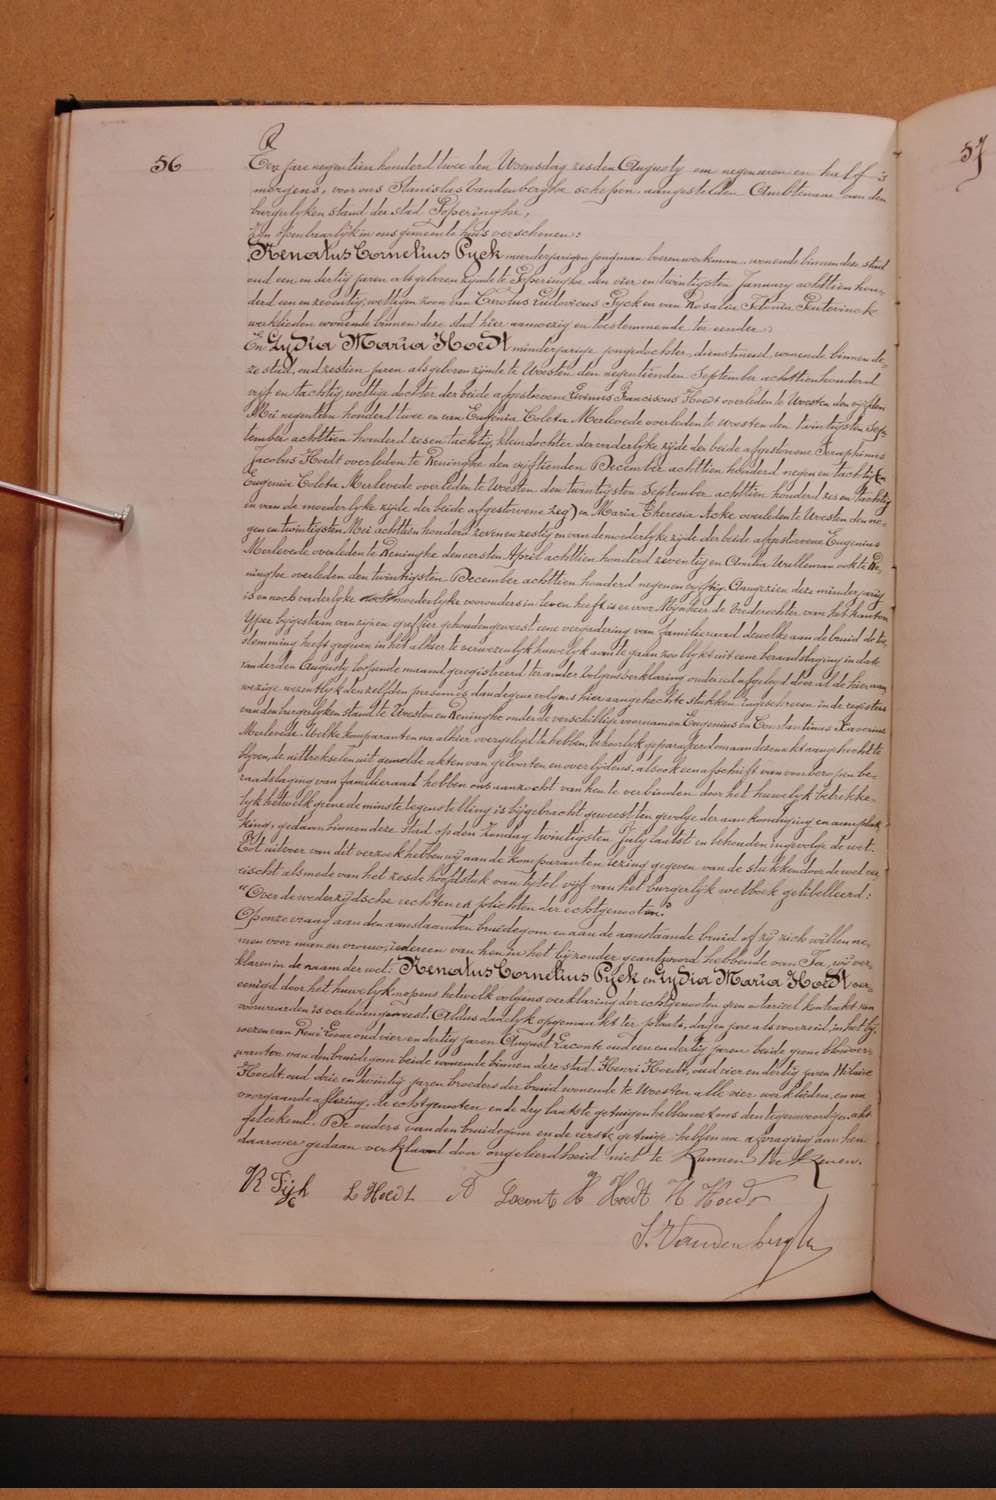 56
57
Ten jare negentien honderd twee den Woensdag zesden Augusty om negen uren en half 's
morgens, voor ons Stanislas Vandenberghe schepen, aangestelden Ambtenaar van den
burgerlyken stand der stad Poperinghe,
Zyn openbaarlyk in ons gemeente huis verschenen:
Renatus Cornelius Pyck meerderjarigen jongman boerenwerkman, wonende binnen deze stad
oud een en dertig jaren als geboren zynde te Poperinghe den vier en twintigsten January achttien hon-
derd een en zeventig, wettigen zoon van Carolus Ludovicus Pyck en van Rosalia Sidonia
werklieden wonende binnen deze stad hier aanwezig en toestemmende ter eender:
En Lydia Maria Hoedt minderjarige jongedochter, dienstmeid, wonende binnen de-
ze stad, oud zestien jaren als geboren zynde te Woesten den negentienden September achttienhonderd
vyf en tachtig, wettige dochter der beide afgestorvene Franciscus Hoedt overleden te Woesten den vyfden
Mei negentien honderd twee en van Eugenia Coleta Merlevede overleden te Woesten den twintigsten Sep-
tember achttien honderd zes en tachtig, kleindochter der vaderlyke zyde der beide afgestorvene Seraphinus
Jacobus Hoedt overleden te Reninghe den vyftienden December achttien honderd negen en tachtig (en
Eugenia Coleta Merlevede overleden te Woesten den twintigsten September achttien honderd zes en tachtig
en van de moederlyke zyde der beide afgestorvene zeg) en Maria Theresia Acke overleden te Woesten den ne-
gen en twintigsten Mei achttien honderd zeven en zestig en van de moederlyke zyde der beide afgestorvene Eugenius
Merlevede overleden te Reninghe den eersten April achttien honderd zeventig en Amelia Wulleman ook te Re-
ninghe overleden den twintigsten December achttien honderd negen en vyftig. Aangezien deze minderjarig
is en noch vaderlyke noch moederlyke voorouders in leven heeft is er voor Mynheer de Vrederechter van het kanton
Yper bygestaan van zynen greffier gehouden geweest eene vergadering van familieraad dewelke aan de bruid de toe-
stemming heeft gegeven in het alhier te verwezenlyk huwelyk aan te gaan zoo blykt uit eene beraadslaging in date
van der den Augusty loopende maand geregistreerd ter ander volgens verklaring onder eed afgelegd door al de hier aan-
wezige wezentlyk denzelfden persoon is dan degene volgens hier aangehechte stukken ingeschreven in de registers
van den burgerlyken stand te Woesten en Reninghe onder de verschillige voornamen Eugenius en Constantinus Xaverius
Merlevede. Welke komparanten na alhier overgelegd te hebben, behoorlyk geparafeerd om aan deze nakt aangehecht te
blyven, de uittrekselen uit gemelde akten van geboorten en overlydens, alsook een afschrift van voorberoepen be-
raadslaging van familieraad hebben ons aanzocht van hen te verbinden door het huwelyk betrekke-
lyk hetwelk geene de minste tegenstelling is bygebracht geweest ten gevolge der aankondiging en aanplak-
king, gedaan binnen deze stad op den Zondag twintigsten July laatst en behouden ingevolge de wet.
Tot uitvoer van dit verzoek hebben wy aan de komparanten lezing gegeven van de stukken door de wet ver-
eischt alsmede van het zesde hoofdstuk van tytel vyf van het burgerlyk wetboek getitelleerd:
"Over de wederzydsche rechten en plichten der echtgenooten."
Op onze vraag aan den aanstaanden bruidegom en aan de aanstaande bruid of zy zich willen ne-
men voor man en vrouw, iedereen van hen in het byzonder geantwoord hebbende van Ja, wy ver-
klaren in de naam der wet: Renatus Cornelius Pyck en Lydia Maria Hoedt ver-
eenigd door het huwelyk, nopens hetwelk volgens verklaring der echtgenooten geen notarieel kontrakt van
voorwaarden is verleden geweest. Aldus dadelyk opgemaakt ter plaats, dag en jare als voorzeid, in het by-
wezen van René oud vier en dertig jaren August Laconte oud een en dertig jaren beide geene bloedver-
wanten van den bruidegom beide wonende binnen deze stad. Henri Hoedt, oud vier en dertig jaren Hilaire
Hoedt oud drie en twintig jaren broeders der bruid wonende te Woesten alle vier werklieden, en na
voorgaande aflezing, de echtgenooten en de dry laatste getuigen hebben met ons den tegenwoordigen akt
geteekend. De ouders van den bruidegom en de eerste getuige hebben na afvraging aan hen
daarover gedaan verklaard door ongeleerdheid niet te kunnen teekenen.
R Pyck L Hoedt A Laconte H Hoedt H Hoedt
S. Vandenberghe